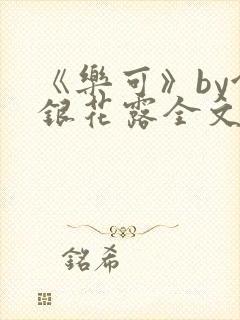 《樂可》by
銀花露全文
銘希